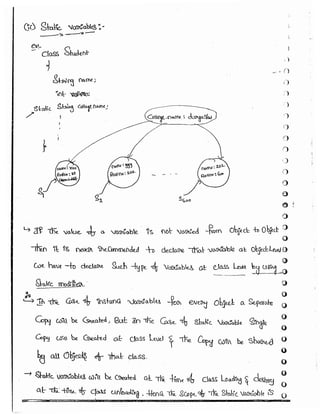 (ii) Static Variables:-
Ex:
Class Student
{
String name;
int rollno;
Static String collegename;
College name : durgasoftw
}
name:
Rollno: 101
name:
Rollno: 102
name:
Rollno: 600
S1
S2
S600
↳ If the value of a variable is not varied from Object to Object
then it is never recommended to declare that variable at Object Level
we have to declare Such type of Variables at class Level by using
Static modifier.
↳ In the Case of instance variables for every Object a Separate
Copy will be Created, But in the Case of Static Variable Single
Copy will be Created at Class Level & the Copy will be Shared
by all Objects of that class.
→ Static variables will be Created at the time of Class Loading & destroy
at the time of class unloading. Hence the Scope of the Static Variable is